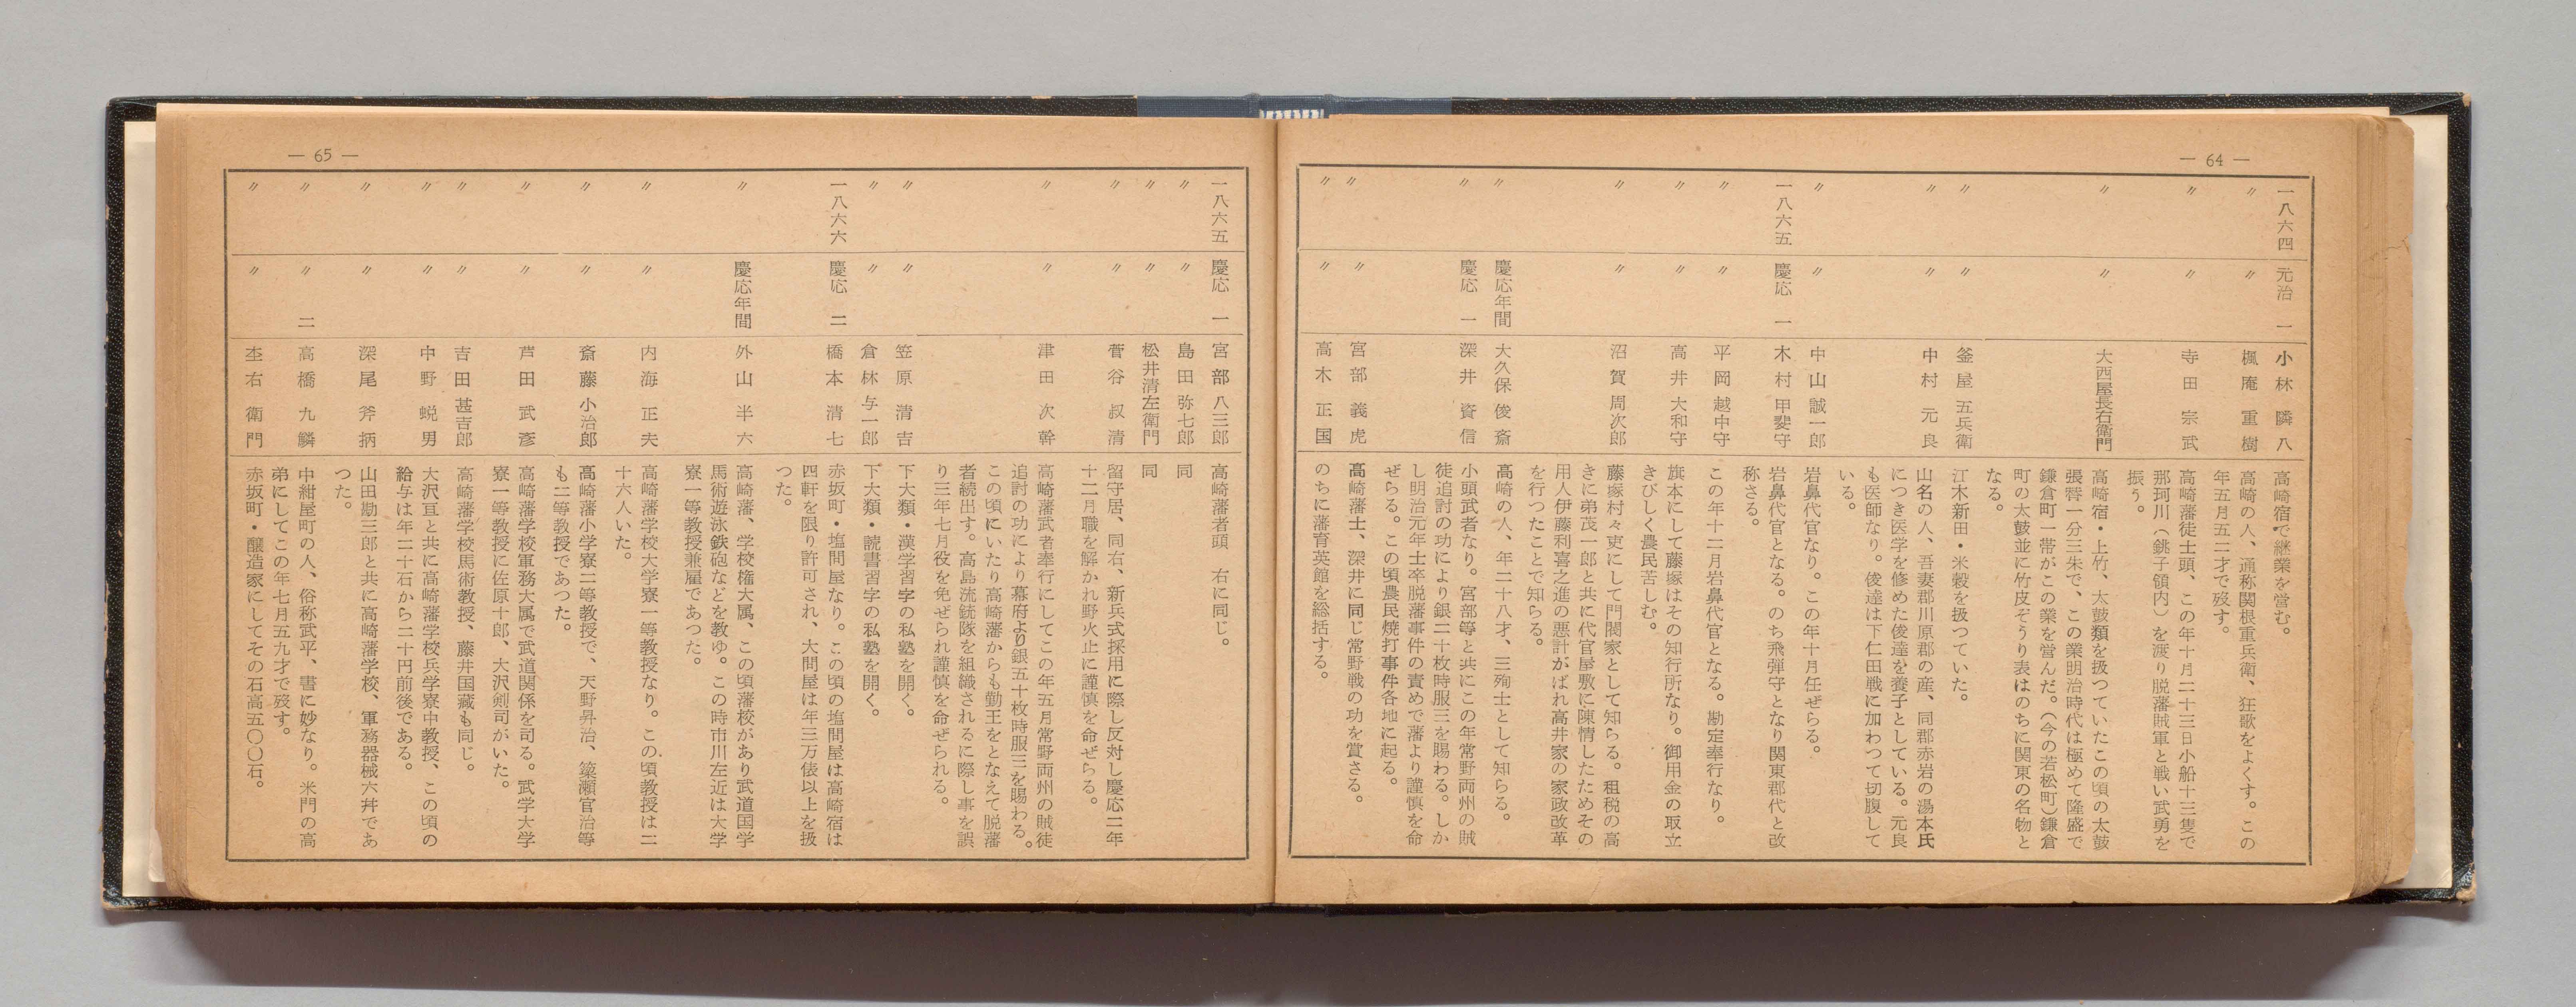 — 64 —
一八六四 元治 一 小林 隣八 高崎宿で継業を営む。
〃 〃 楓庵 重樹 高崎の人、通称関根重兵衛、狂歌をよくす。この
年五月五二才で歿す。
〃 〃 寺田 宗武 高崎藩徒士頭、この年十月二十三日小船十三隻で
那珂川（銚子領内）を渡り脱藩賊軍と戦い武勇を
振う。
〃 〃 大西屋長右衛門 高崎宿・上竹、太鼓類を扱つていたこの頃の太鼓
張替一分三朱で、この業明治時代は極めて隆盛で
鎌倉町一帯がこの業を営んだ。（今の若松町）鎌倉
町の太鼓並に竹皮ぞうり表はのちに関東の名物と
なる。
〃 〃 釜屋 五兵衛 江木新田・米穀を扱つていた。
〃 〃 中村 元良 山名の人、吾妻郡川原郡の産、同郡赤岩の湯本氏
につき医学を修めた俊達を養子としている。元良
も医師なり。俊達は下仁田戦に加わつて切腹して
いる。
〃 〃 中山 誠一郎 岩鼻代官なり。この年十月任ぜらる。
一八六五 慶応 一 木村 甲斐守 岩鼻代官となる。のち飛弾守となり関東郡代と改
称さる。
〃 〃 平岡 越中守 この年十二月岩鼻代官となる。勘定奉行なり。
〃 〃 高井 大和守 旗本にして藤塚はその知行所なり。御用金の取立
きびしく農民苦しむ。
〃 〃 沼賀 周次郎 藤塚村々吏にして門閥家として知らる。租税の高
きに弟茂一郎と共に代官屋敷に陳情したためその
用人伊藤利喜之進の悪計がばれ高井家の家政改革
を行つたことで知らる。
〃 慶応年間 大久保 俊斎 高崎の人、年二十八才、三殉士として知らる。
〃 慶応 一 深井 資信 小頭武者なり。宮部等と共にこの年常野両州の賊
徒追討の功により銀二十枚時服三を賜わる。しか
し明治元年士卒脱藩事件の責めで藩より謹慎を命
ぜらる。この頃農民焼打事件各地に起る。
〃 〃 宮部 義虎 高崎藩士、深井に同じ常野戦の功を賞さる。
〃 〃 高木 正国 のちに藩育英館を総括する。
— 65 —
一八六五 慶応 一 宮部 八三郎 高崎藩者頭 右に同じ。
〃 〃 島田 弥七郎 同
〃 〃 松井清左衛門 同
〃 〃 菅谷 叔清 留守居、同右、新兵式採用に際し反対し慶応二年
十二月職を解かれ野火止に謹慎を命ぜらる。
〃 〃 津田 次幹 高崎藩武者奉行にしてこの年五月常野両州の賊徒
追討の功により幕府より銀五十枚時服三を賜わる。
この頃にいたり高崎藩からも勤王をとなえて脱藩
者続出す。高島流銃隊を組織されるに際し事を誤
り三年七月役を免ぜられ謹慎を命ぜられる。
〃 〃 笠原 清吉 下大類・漢学習字の私塾を開く。
〃 〃 倉林 与一郎 下大類・読書習字の私塾を開く。
一八六六 慶応 二 橋本 清七 赤坂町・塩問屋なり。この頃の塩問屋は高崎宿は
四軒を限り許可され、大問屋は年三万俵以上を扱
つた。
〃 慶応年間 外山 半六 高崎藩、学校権大属、この頃藩校があり武道国学
馬術遊泳鉄砲などを教ゆ。この時市川左近は大学
寮一等教授兼雇であつた。
〃 〃 内海 正夫 高崎藩学校大学寮一等教授なり。この頃教授は二
十六人いた。
〃 〃 斎藤 小治郎 高崎藩小学寮二等教授で、天野昇治、簗瀬官治等
も二等教授であつた。
〃 〃 芦田 武彦 高崎藩学校軍務大属で武道関係を司る。武学大学
寮一等教授に佐原十郎、大沢剣司がいた。
〃 〃 吉田 甚吉郎 高崎藩学校馬術教授、藤井国蔵も同じ。
〃 〃 中野 蛻男 大沢亘と共に高崎藩学校兵学寮中教授、この頃の
給与は年二十石から二十円前後である。
〃 〃 深尾 斧柄 山田勘三郎と共に高崎藩学校、軍務器械六丼であ
つた。
〃 〃 二 高橋 九鱗 中紺屋町の人、俗称武平、書に妙なり。米門の高
弟にしてこの年七月五九才で歿す。
〃 〃 坴右衛門 赤坂町・醸造家にしてその石高五〇〇石。